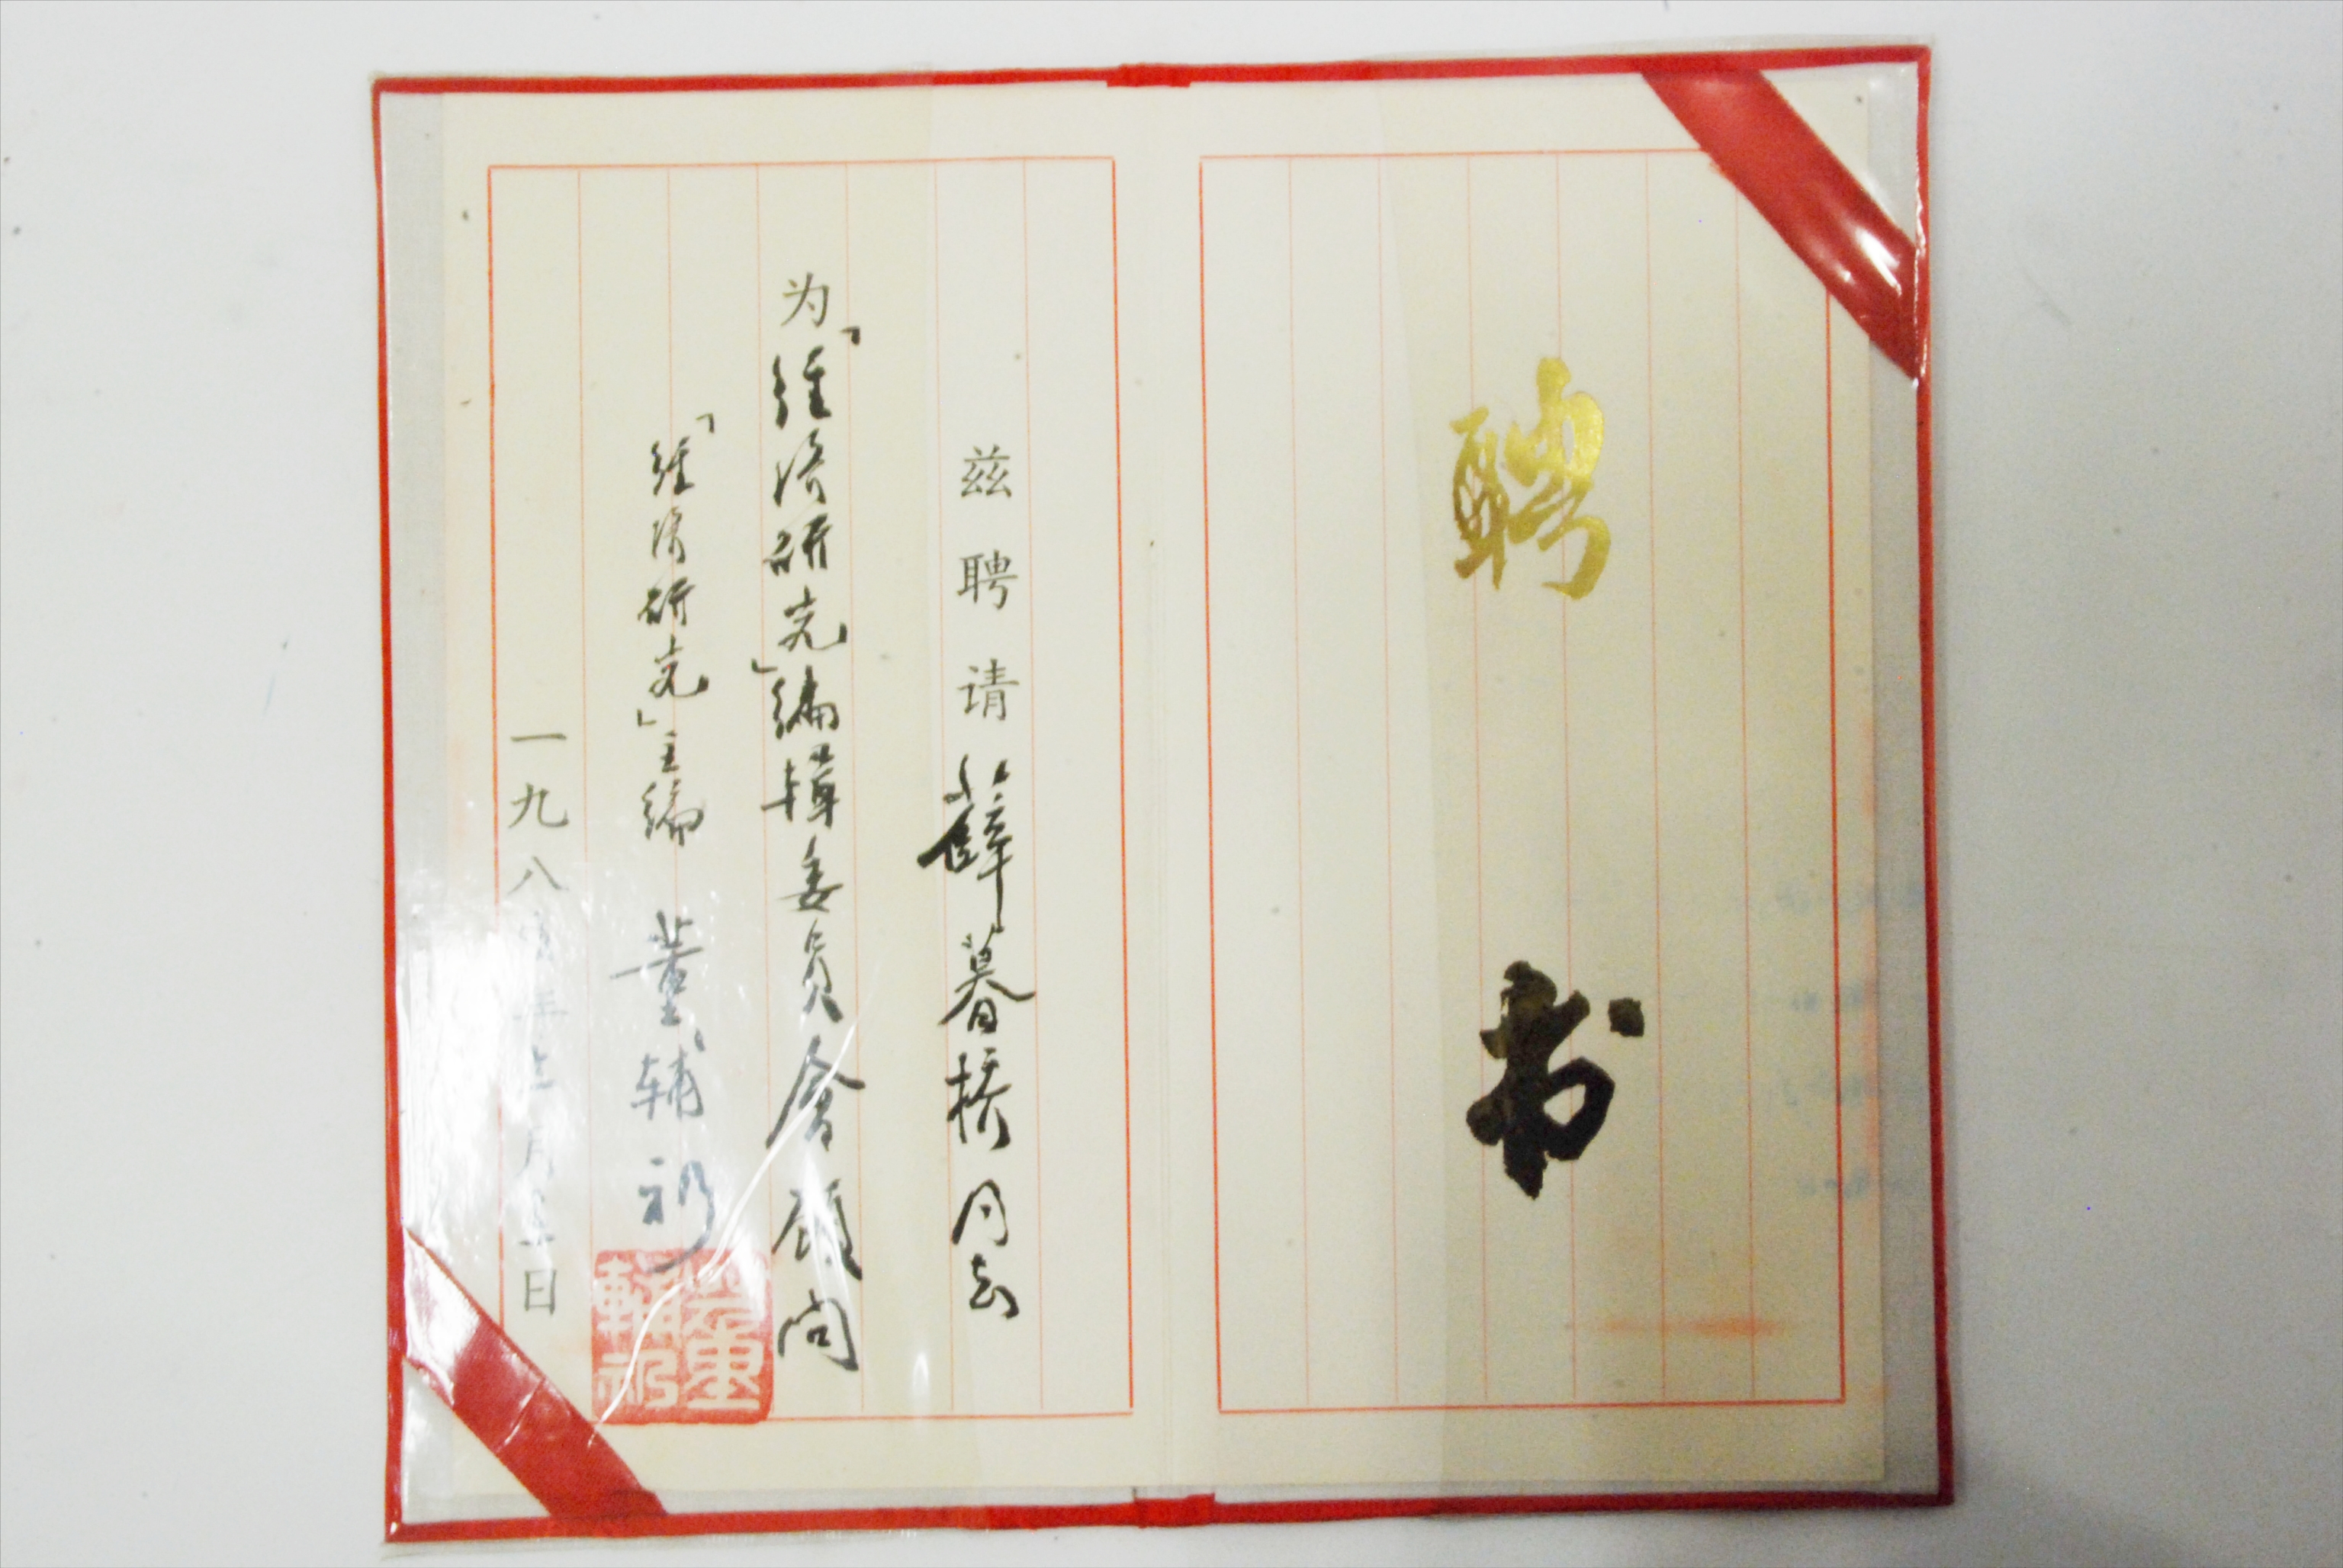 聘书
兹聘请薛暮桥同志
为「经济研究」编辑委员會顾问
「经济研究」主编 董辅礽
一九八 年 月 日
董輔礽